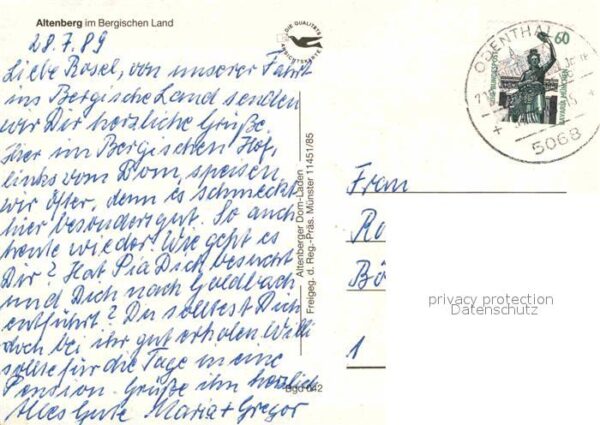 Altenberg im Bergischen Land
28.7.89
Liebe Bosel, von unserer Fahrt
ins Bergische Land senden
wir Dir herzliche Grüße.
Hier im Bergischen Hof,
links vom Dom, speisen
wir öfter, denn es schmeckt
hier besonders gut. So auch
heute wieder. Wie geht es
Dir? Hat Pia Dich besucht
und Dich nach Goldbach
entführt? Du solltest Dich
doch bei ihr gut erholen. Willi
sollte für die Tage in eine
Pension. Grüße ihn herzlich
Alles Gute Maria + Gregor
DIE QUALITÄTS
ANSICHTSKARTE
Altenberger Dom-Laden
Freigeg. d. Reg.-Präs. Münster 11451/85
Bgd 642
ODENTHAL
5068
60
Frau
Ro
Bö
1
privacy protection
Datenschutz